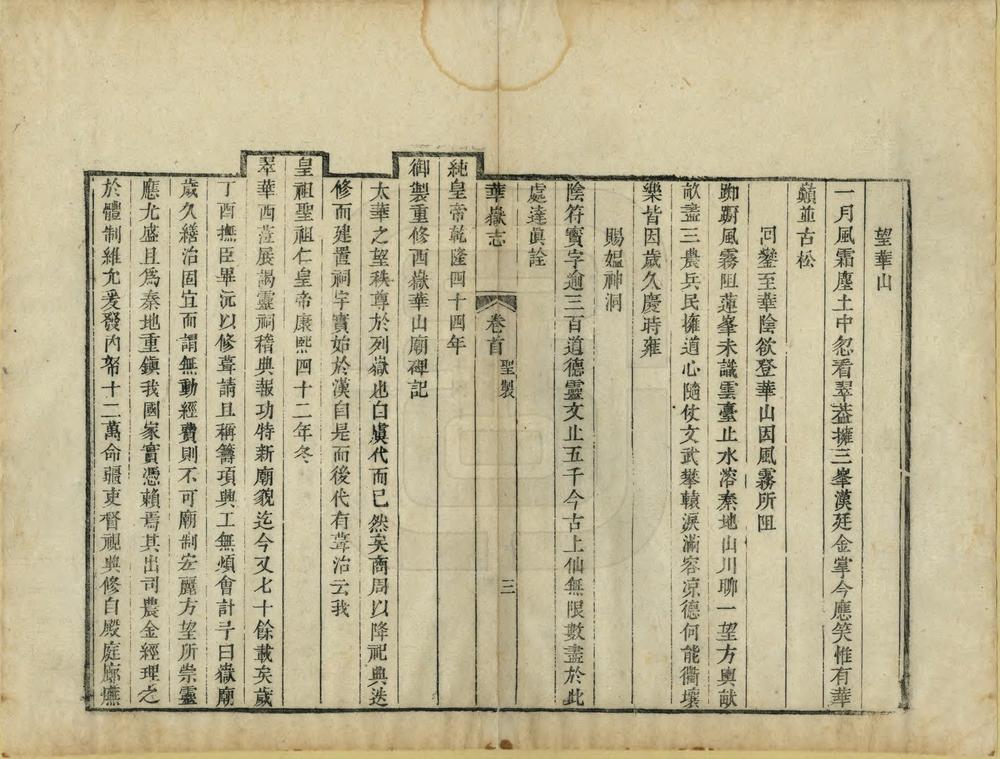 望華山
一月風霜塵土中忽看翠蓋擁三峯漢廷金掌今應笑惟有華
巔並古松
回鑾至華陰欲登華山因風霧所阻
踟躕風霧阻蓮峯未識雲臺止水溶秦地山川聊一望方輿獻
畝盡三農兵民擁道心隨仗文武攀轅淚滿容涼德何能衢壤
樂皆因歲久慶時雍
賜媪神洞
陰符寶字逾三百道德靈文止五千今古上仙無限數盡於此
處達眞詮
華嶽志
卷首
聖製
三
純皇帝乾隆四十四年
御製重修西嶽華山廟碑記
太華之望秩尊於列嶽也自虞代而已然矣商周以降祀典迭
修而建置祠宇實始於漢自是而後代有葺治云我
皇祖聖祖仁皇帝康熙四十二年冬
翠華西蒞展謁靈祠稽典報功特新廟貌迄今又七十餘載矣歲
丁酉撫臣畢沅以修葺請且稱籌項興工無煩會計予曰嶽廟
歲久繕治固宜而謂無動經費則不可廟制宏麗方望所崇靈
應尤盛且爲秦地重鎭我國家實憑賴焉其出司農金經理之
於體制維允爰發內帑十二萬命疆吏督視興修自殿庭廊廡